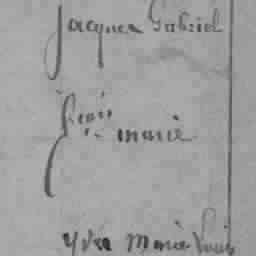 Jacques Gabriel
Frçois marie
Yves Marie Louis